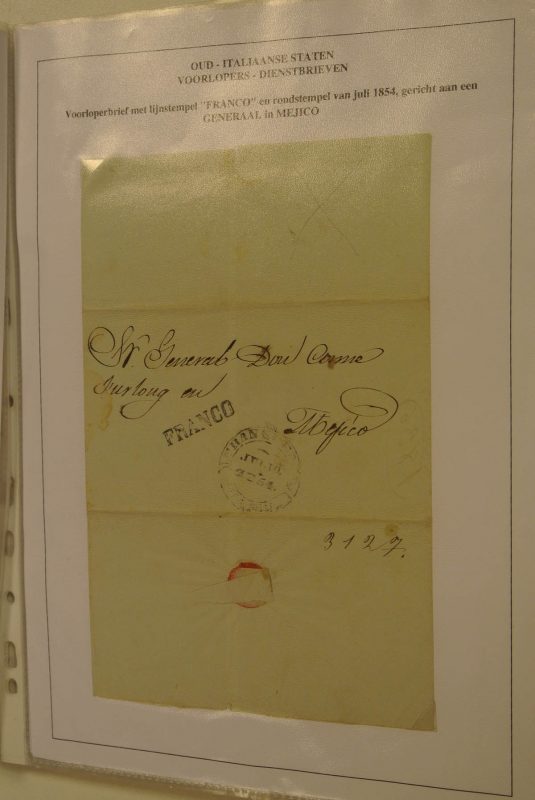 OUD - ITALIAANSE STATEN
VOORLOPERS - DIENSTBRIEVEN
Voorloperbrief met lijnstempel "FRANCO" en rondstempel van juli 1854, gericht aan een
GENERAAL in MEJICO
Sr. General Don Cosme
Furlong en
Mejico
FRANCO
JULIO
1854
3127.